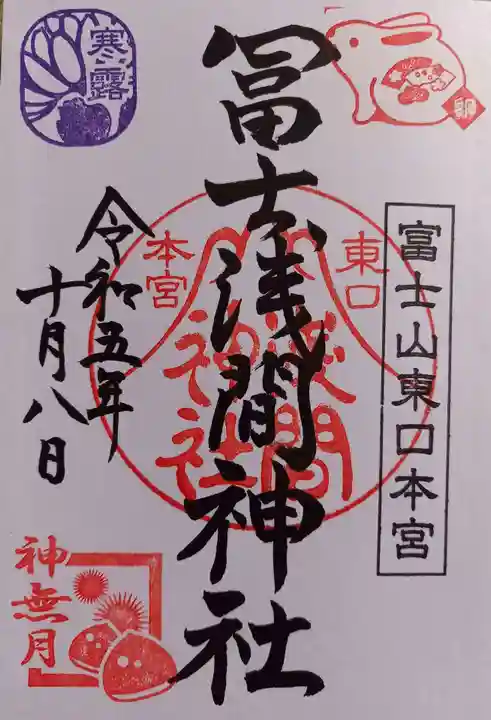 寒露
卯
富士山東口本宮
冨士浅間神社
東口
本宮
浅間
神社
令和五年
十月八日
神無月